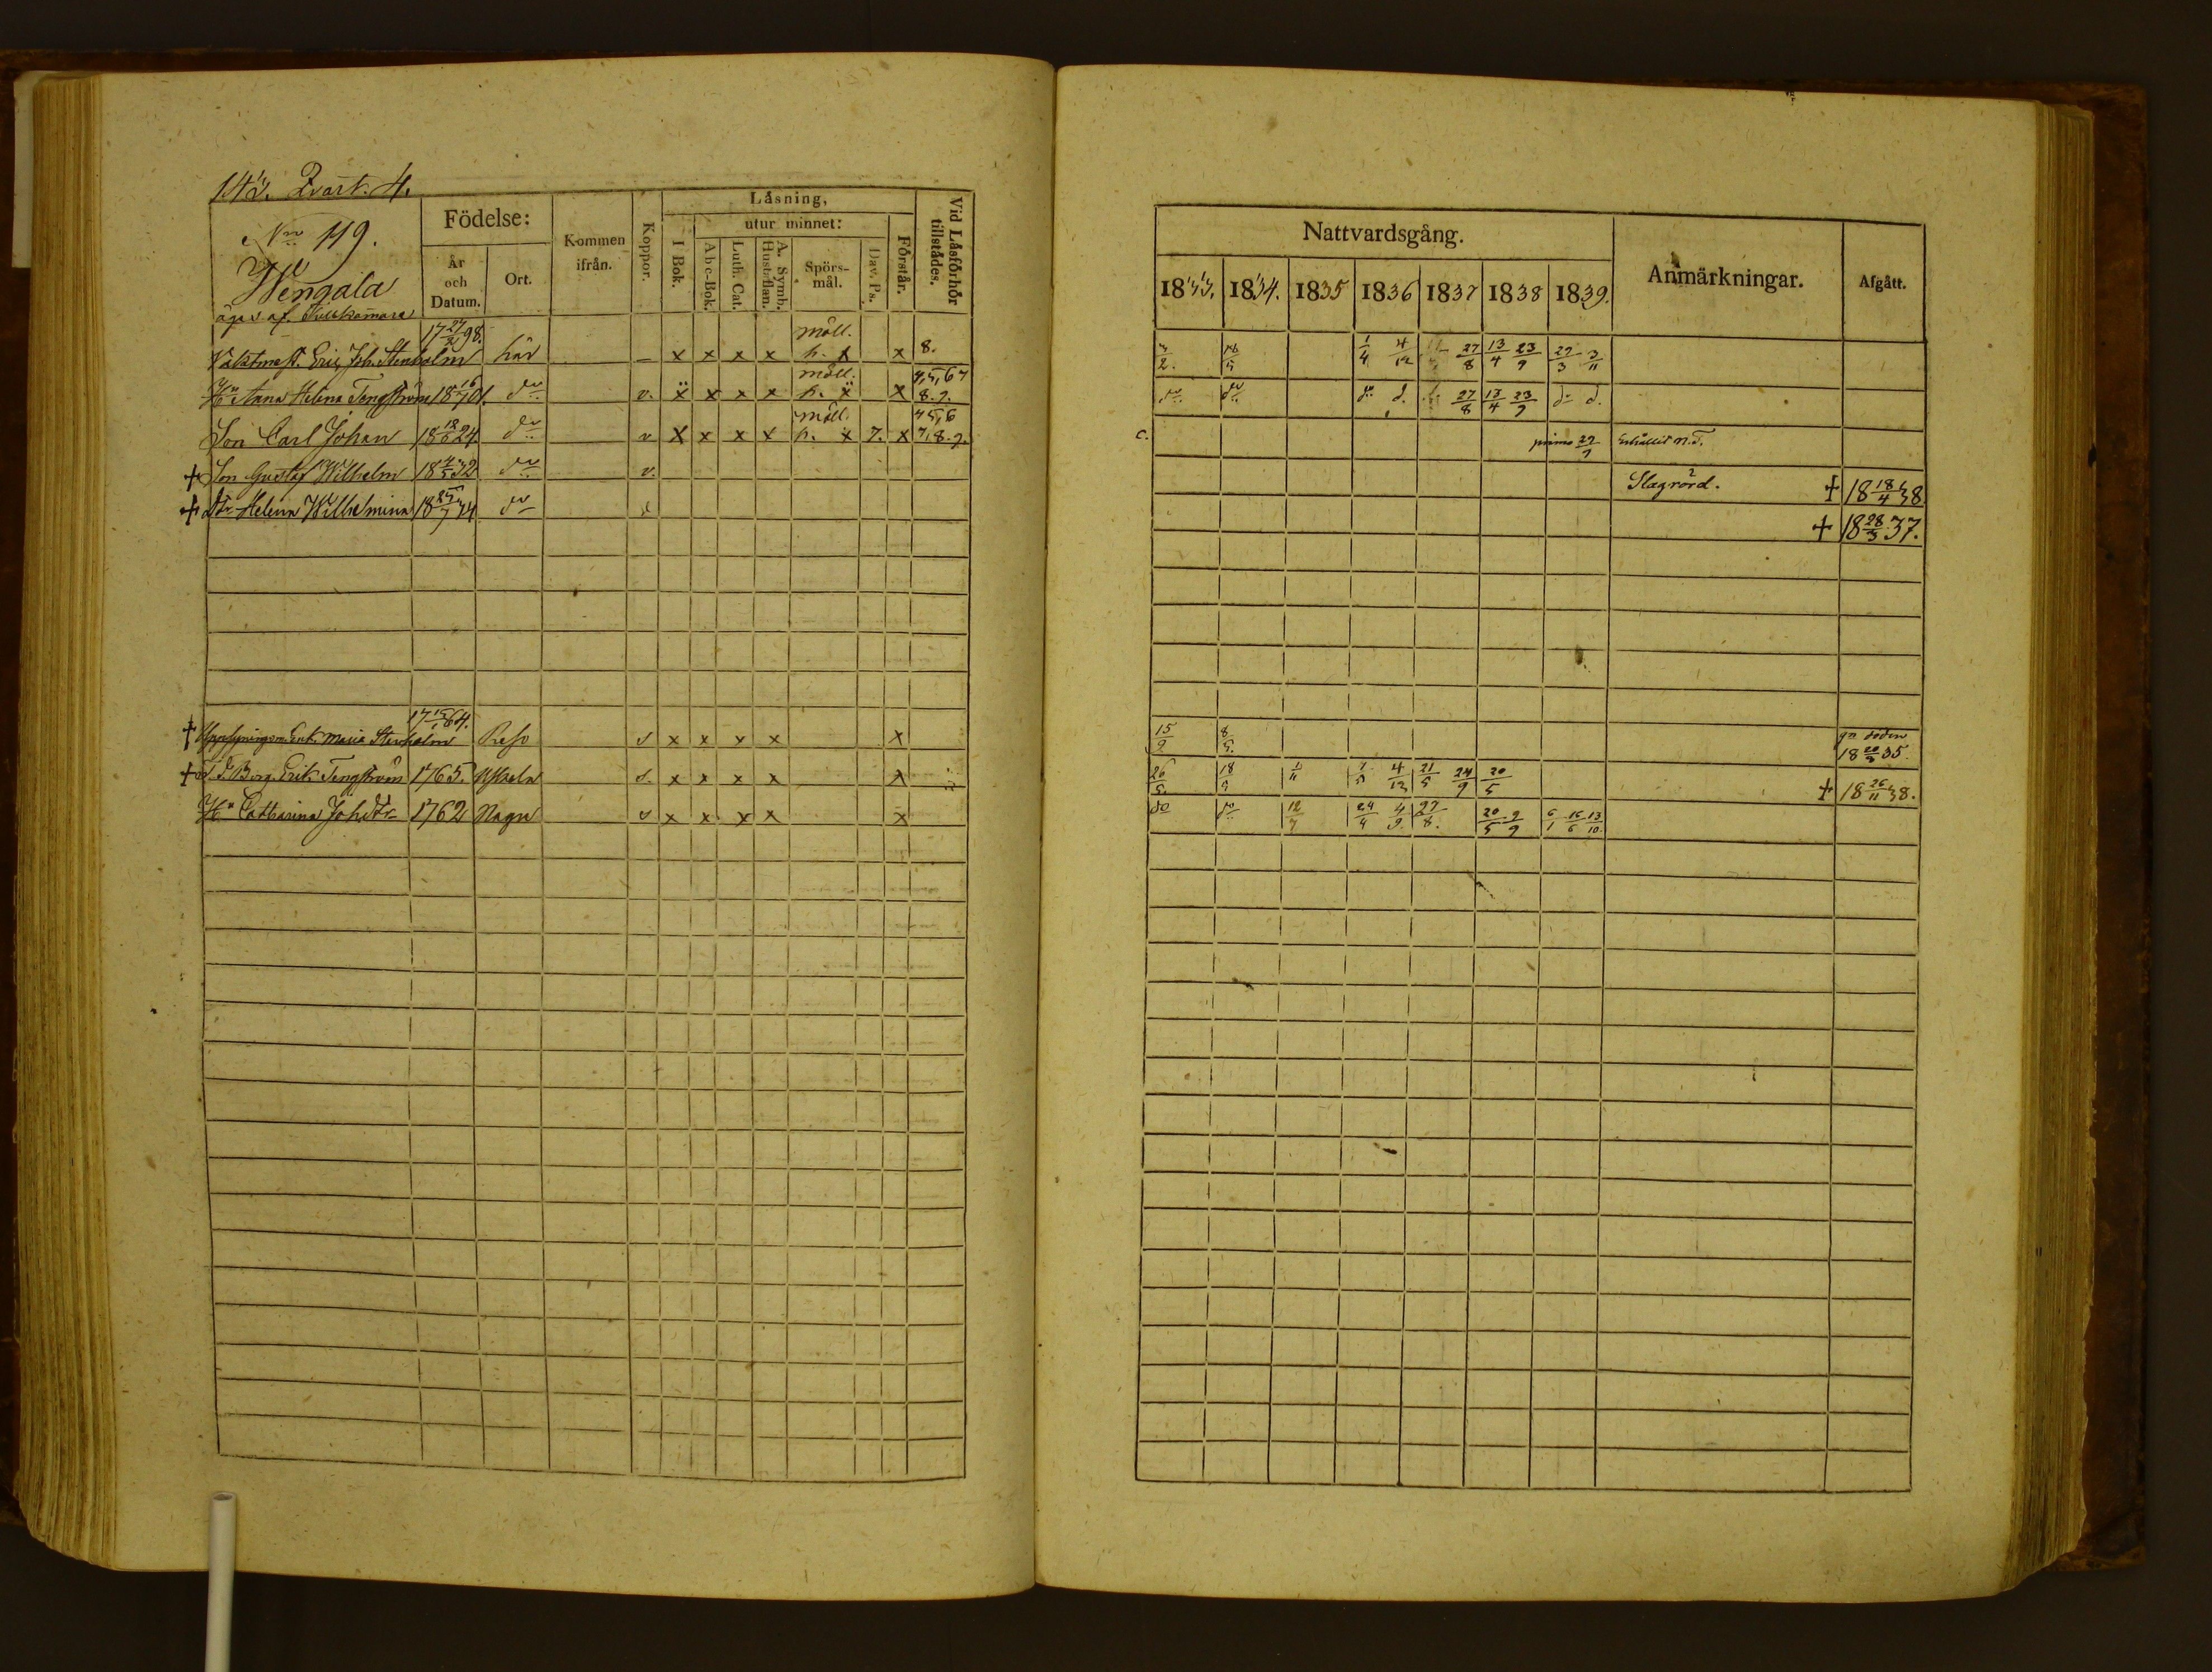 Qvart. 4.
No 119.
Wengala
äges af
Födelse:
År och Datum.
Ort.
Kommen ifrån.
Koppor.
Läsning,
utur minnet:
I Bok.
Abc-Bok.
Luth. Cat.
A. Symb. Hust:flan.
Spörs-mål.
Dav. Ps.
Förstår.
Vid Läsförhör tillstädes.
Eric Joh. Stenholm 17 98. här — x x x x möll. h. x x 8.
Hu Anna Helena Tengström 18 01. do v. x x x x möll. h. x x 4,5,6,7 8.9.
Son Carl Johan 18 18/6 24 do v x x x x möll. h. x 7. x 4,5,6 7,8.9.
+ Son Gustaf Wilhelm 18 4/5 32 do v.
+ dtr Helena Wilhelmina 18 25/7 34 do
+ Enk. Maria Stenholm 17 15/1 64. Reso v x x x x x
+ Erik Tengström 1765. v. x x x x x
Hu Catharina Joh.dtr 1762 Nagu v x x x x x
Nattvardsgång.
1833. 1834. 1835 1836 1837 1838 1839.
Anmärkningar.
Afgått.
1/4 27/8 13/4 23/9 29/3 3/11
do do d. 27/8 13/4 23/9 do d.
c. primo 29/9 Erhållit N.T.
Slagrörd. + 18 18/4 38
+ 18 28/3 37.
15/9 8/5 gn döden 18 35.
26/5 18/5 1/11 4/12 21/5 24/9 20/5 + 18 26/11 38.
do do 12/7 24/4 4/9. 27/8. 20/5 9/9 6/1 16/6 13/10.